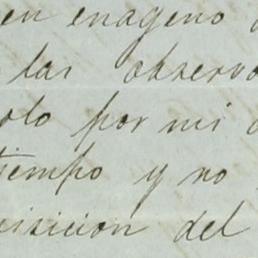 en enageno
las observa
olo por mi
tiempo y no
isicion del